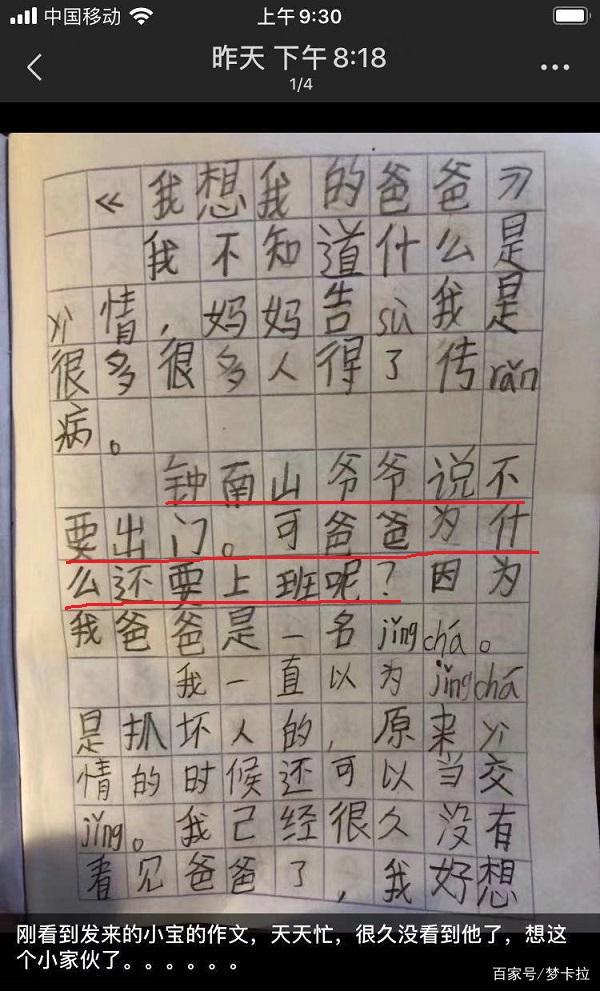 中国移动
上午9:30
昨天 下午8:18
1/4
《我想我的爸爸》
我不知道什么是
yì情，妈妈告sù我是
很多很多人得了传rǎn
病。
钟南山爷爷说不
要出门。可爸爸为什
么还要上班呢？因为
我爸爸是一名jǐngchá。
我一直以为jǐngchá
是扒坏人的，原来yì
情的时候还可以当交
jǐng。我己经很久没有
看见爸爸了，我好想
刚看到发来的小宝的作文，天天忙，很久没看到他了，想这
个小家伙了。。。。。。
百家号/梦卡拉